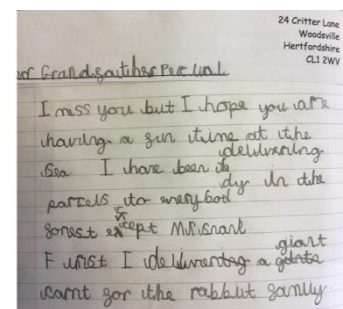 24 Critter Lane
Woodsville
Hertfordshire
CL1 2WV
Grandgauther Percival
I miss you but I hope you are
having a gun time at the
Sea I have been delivering
parcels to everybody in the
gorest except Mr Snart
First I delivering a giant
carnt gor the rabbit gamly